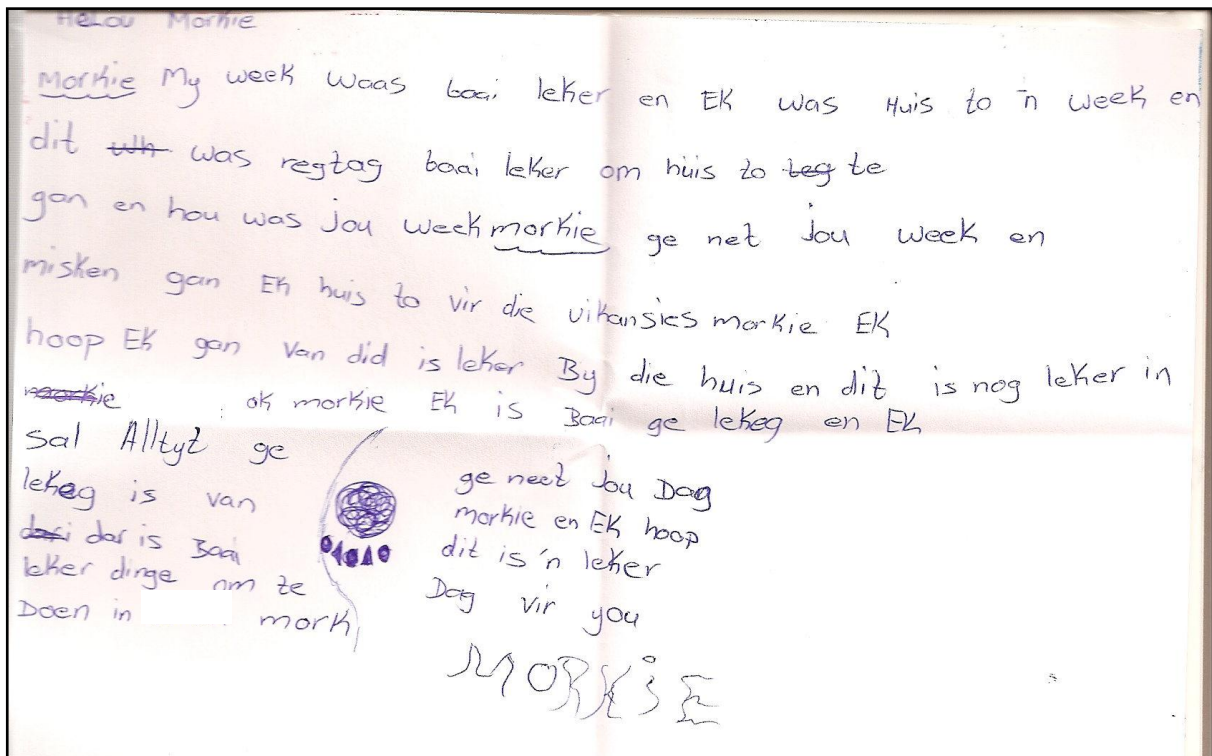 Helou Morkie
Morkie My week waas baai leker en EK was Huis to 'n week en
dit was regtag baai leker om huis to te
gan en hou was jou week morkie ge net jou week en
misken gan EK huis to vir die vikansies morkie EK
hoop EK gan van did is leker By die huis en dit is nog leker in
ok morkie EK is Baai ge lekeg en EK
sal Alltyt ge
lekeg is van
dar is Baai
leker dinge om te
Doen in mork
ge neet jou Dag
morkie en EK hoop
dit is 'n leker
Dag vir you
MORKiE